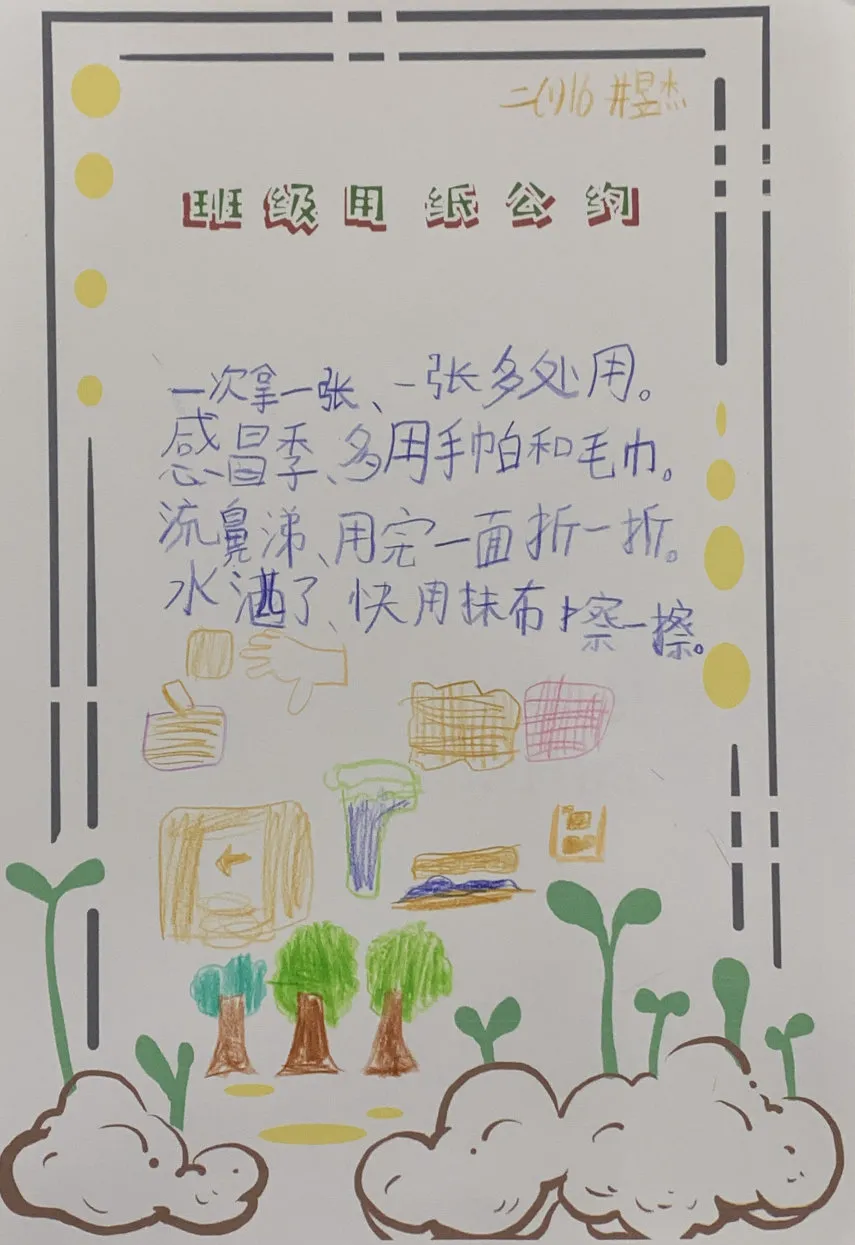 二(1)16 井昱杰
班级用纸公约
一次拿一张、一张多处用。
感冒季、多用手帕和毛巾。
流鼻涕、用完一面折一折。
水洒了、快用抹布擦一擦。